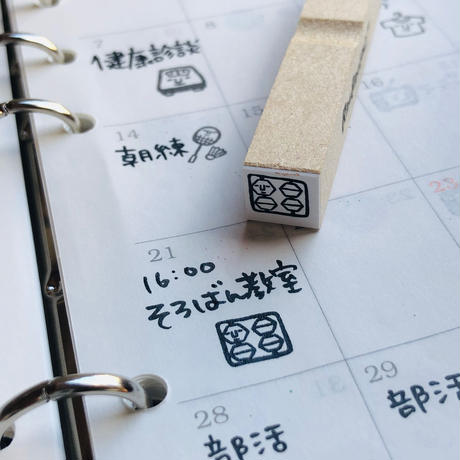 7
健康診談
14
朝練
15
16
21
16:00
そろばん教室
23
28
部活
29
部活